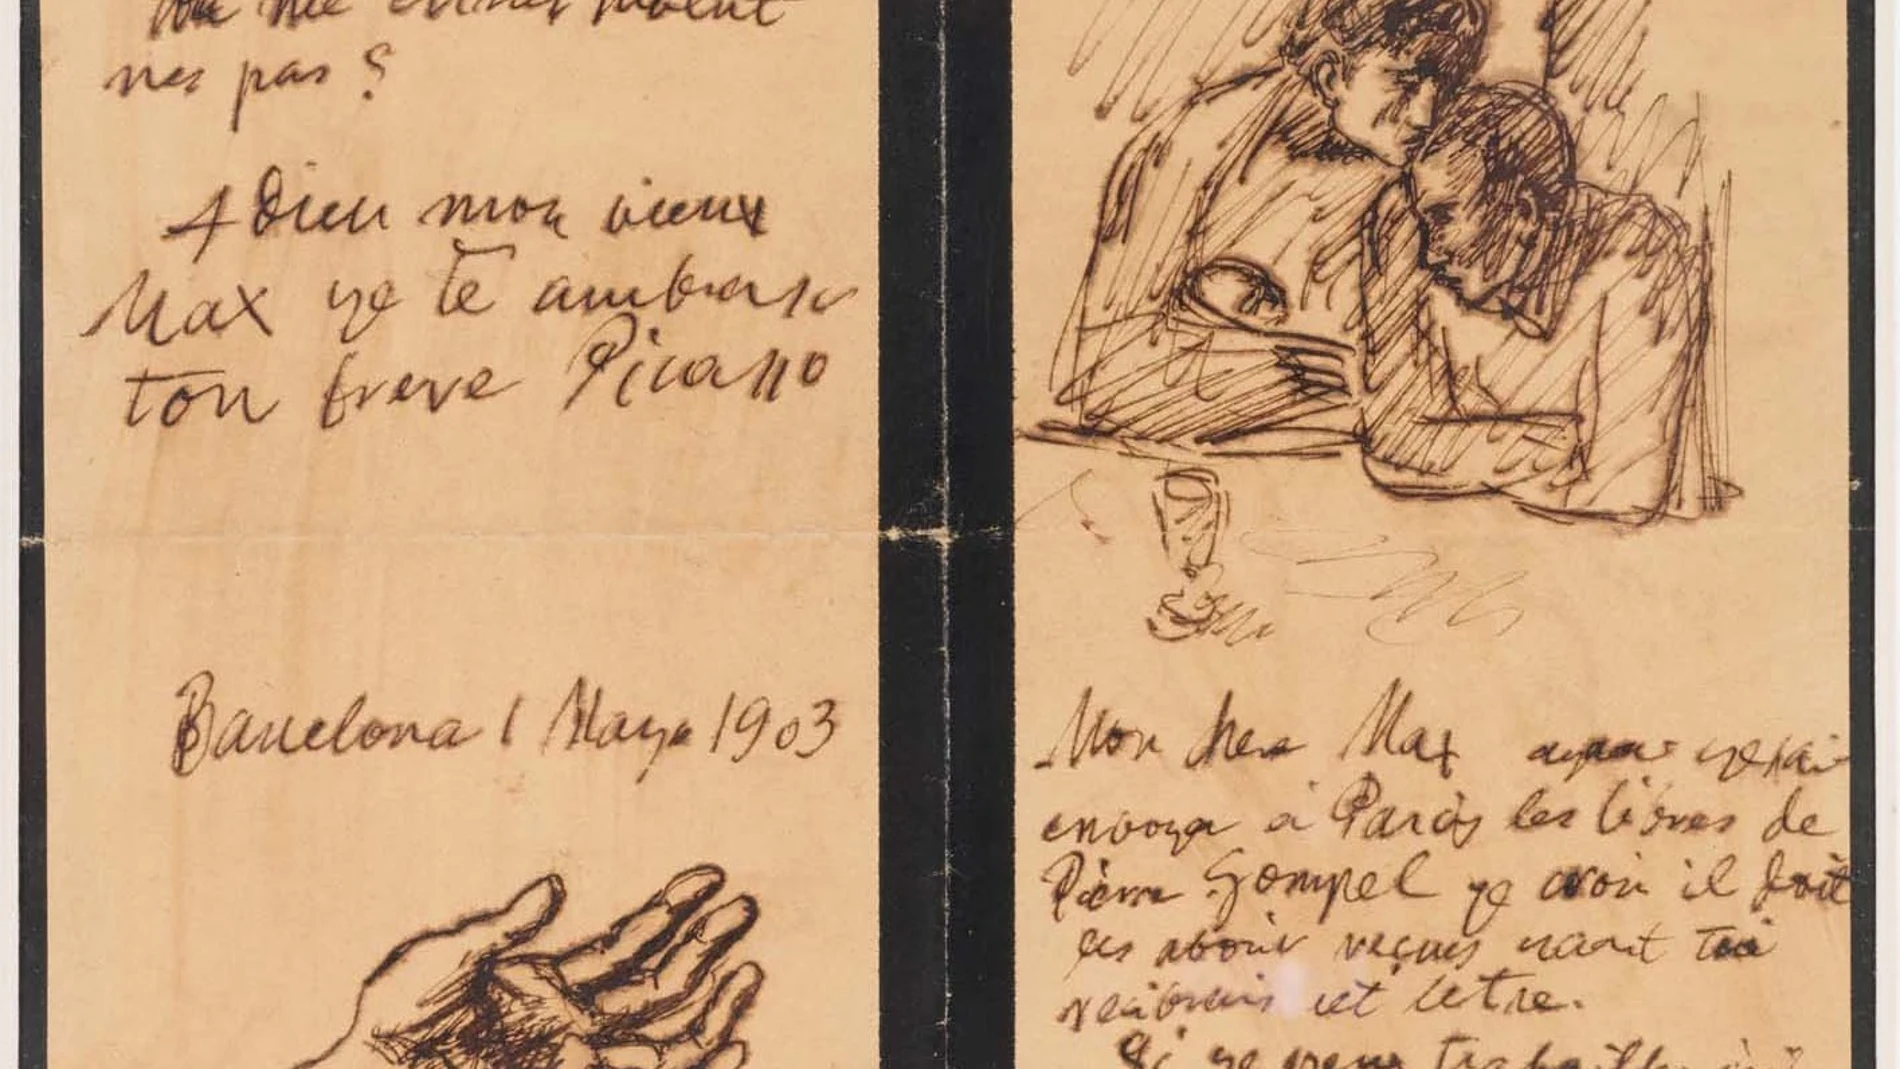 me
nes pas ?
Adieu mon vieux
Max ye te ambrasse
ton frere Picasso
Barcelona 1 Mayo 1903
Mon cher Max
à Paris les livres de
Pierre Gompel ye croi il doit
les aboir reçus toi
cet letre.
Si ye peux